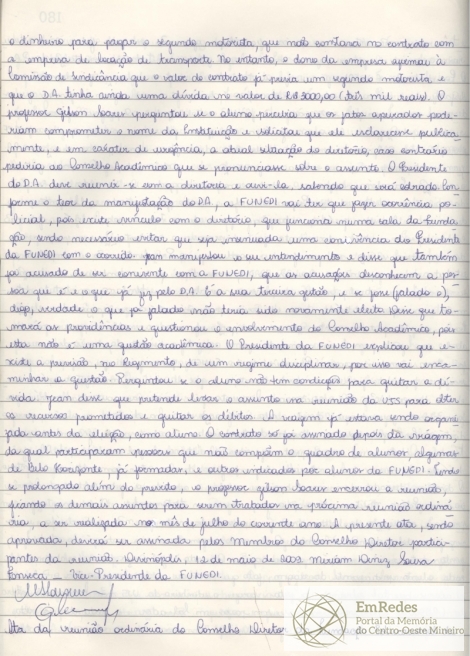 o dinheiro para pagar o segundo motorista, que não constava no contrato com
a empresa de locação de transporte. No entanto, o dono da empresa afirmou à
Comissão de Sindicância que o valor do contrato já previa um segundo motorista e
que o D.A. tinha ainda uma dívida no valor de R$ 3000,00 (três mil reais). O
professor Gilson Soares perguntou se o aluno percebia que os fatos apurados pode-
riam comprometer o nome da Instituição e solicitou que ele esclarecesse publica-
mente, e em caráter de urgência, a atual situação do diretório, caso contrário
pediria ao Conselho Acadêmico que se pronunciasse sobre o assunto. O Presidente
do D.A. disse reunir-se com a diretoria e ouvi-la, sabendo que será cobrado. Con-
forme o teor da manifestação do D.A., a FUNEDI vai ter que fazer ocorrência po-
licial, pois existe vínculo com o diretório, que funciona numa sala da Funda-
ção, sendo necessário evitar que seja insinuada uma conivência do Presidente
da FUNEDI com o ocorrido. Jean manifestou o seu entendimento e disse que também
foi acusado de ser conivente com a FUNEDI, que as acusações desconhecem a pes-
soa que é e o que já fez pelo D.A. É a sua terceira gestão, e se fosse (falado o),
digo, verdade o que foi falado não teria sido novamente eleito. Disse que to-
mará as providências e questionou o envolvimento do Conselho Acadêmico, pois
esta não é uma questão acadêmica. O Presidente da FUNEDI explicou que e-
xiste a previsão, no Regimento, de um regime disciplinar, por isso vai enca-
minhar a questão. Perguntou se o aluno não tem condições para quitar a dí-
vida. Jean disse que pretende levar o assunto na reunião da para obter
os recursos prometidos e quitar os débitos. A viagem já estava sendo organi-
zada antes da eleição, como aluno. O contrato só foi assinado depois da viagem,
da qual participaram pessoas que não compõem o quadro de alunos, algumas
de Belo Horizonte, já formadas, e outros indicados por alunos da FUNEDI. Tendo
se prolongado além do previsto, o professor Gilson Soares encerrou a reunião,
ficando os demais assuntos para serem tratados na próxima reunião ordiná-
ria, a ser realizada no mês de julho do corrente ano. A presente ata, sendo
aprovada, deverá ser assinada pelos Membros do Conselho Diretor partici-
pantes da reunião. Divinópolis, 12 de maio de 2003. Miriam Diniz Sousa
Fonseca - Vice-Presidente da FUNEDI.
EmRedes
Portal da Memória
do Centro-Oeste Mineiro
Ata da reunião ordinária do Conselho Diretor